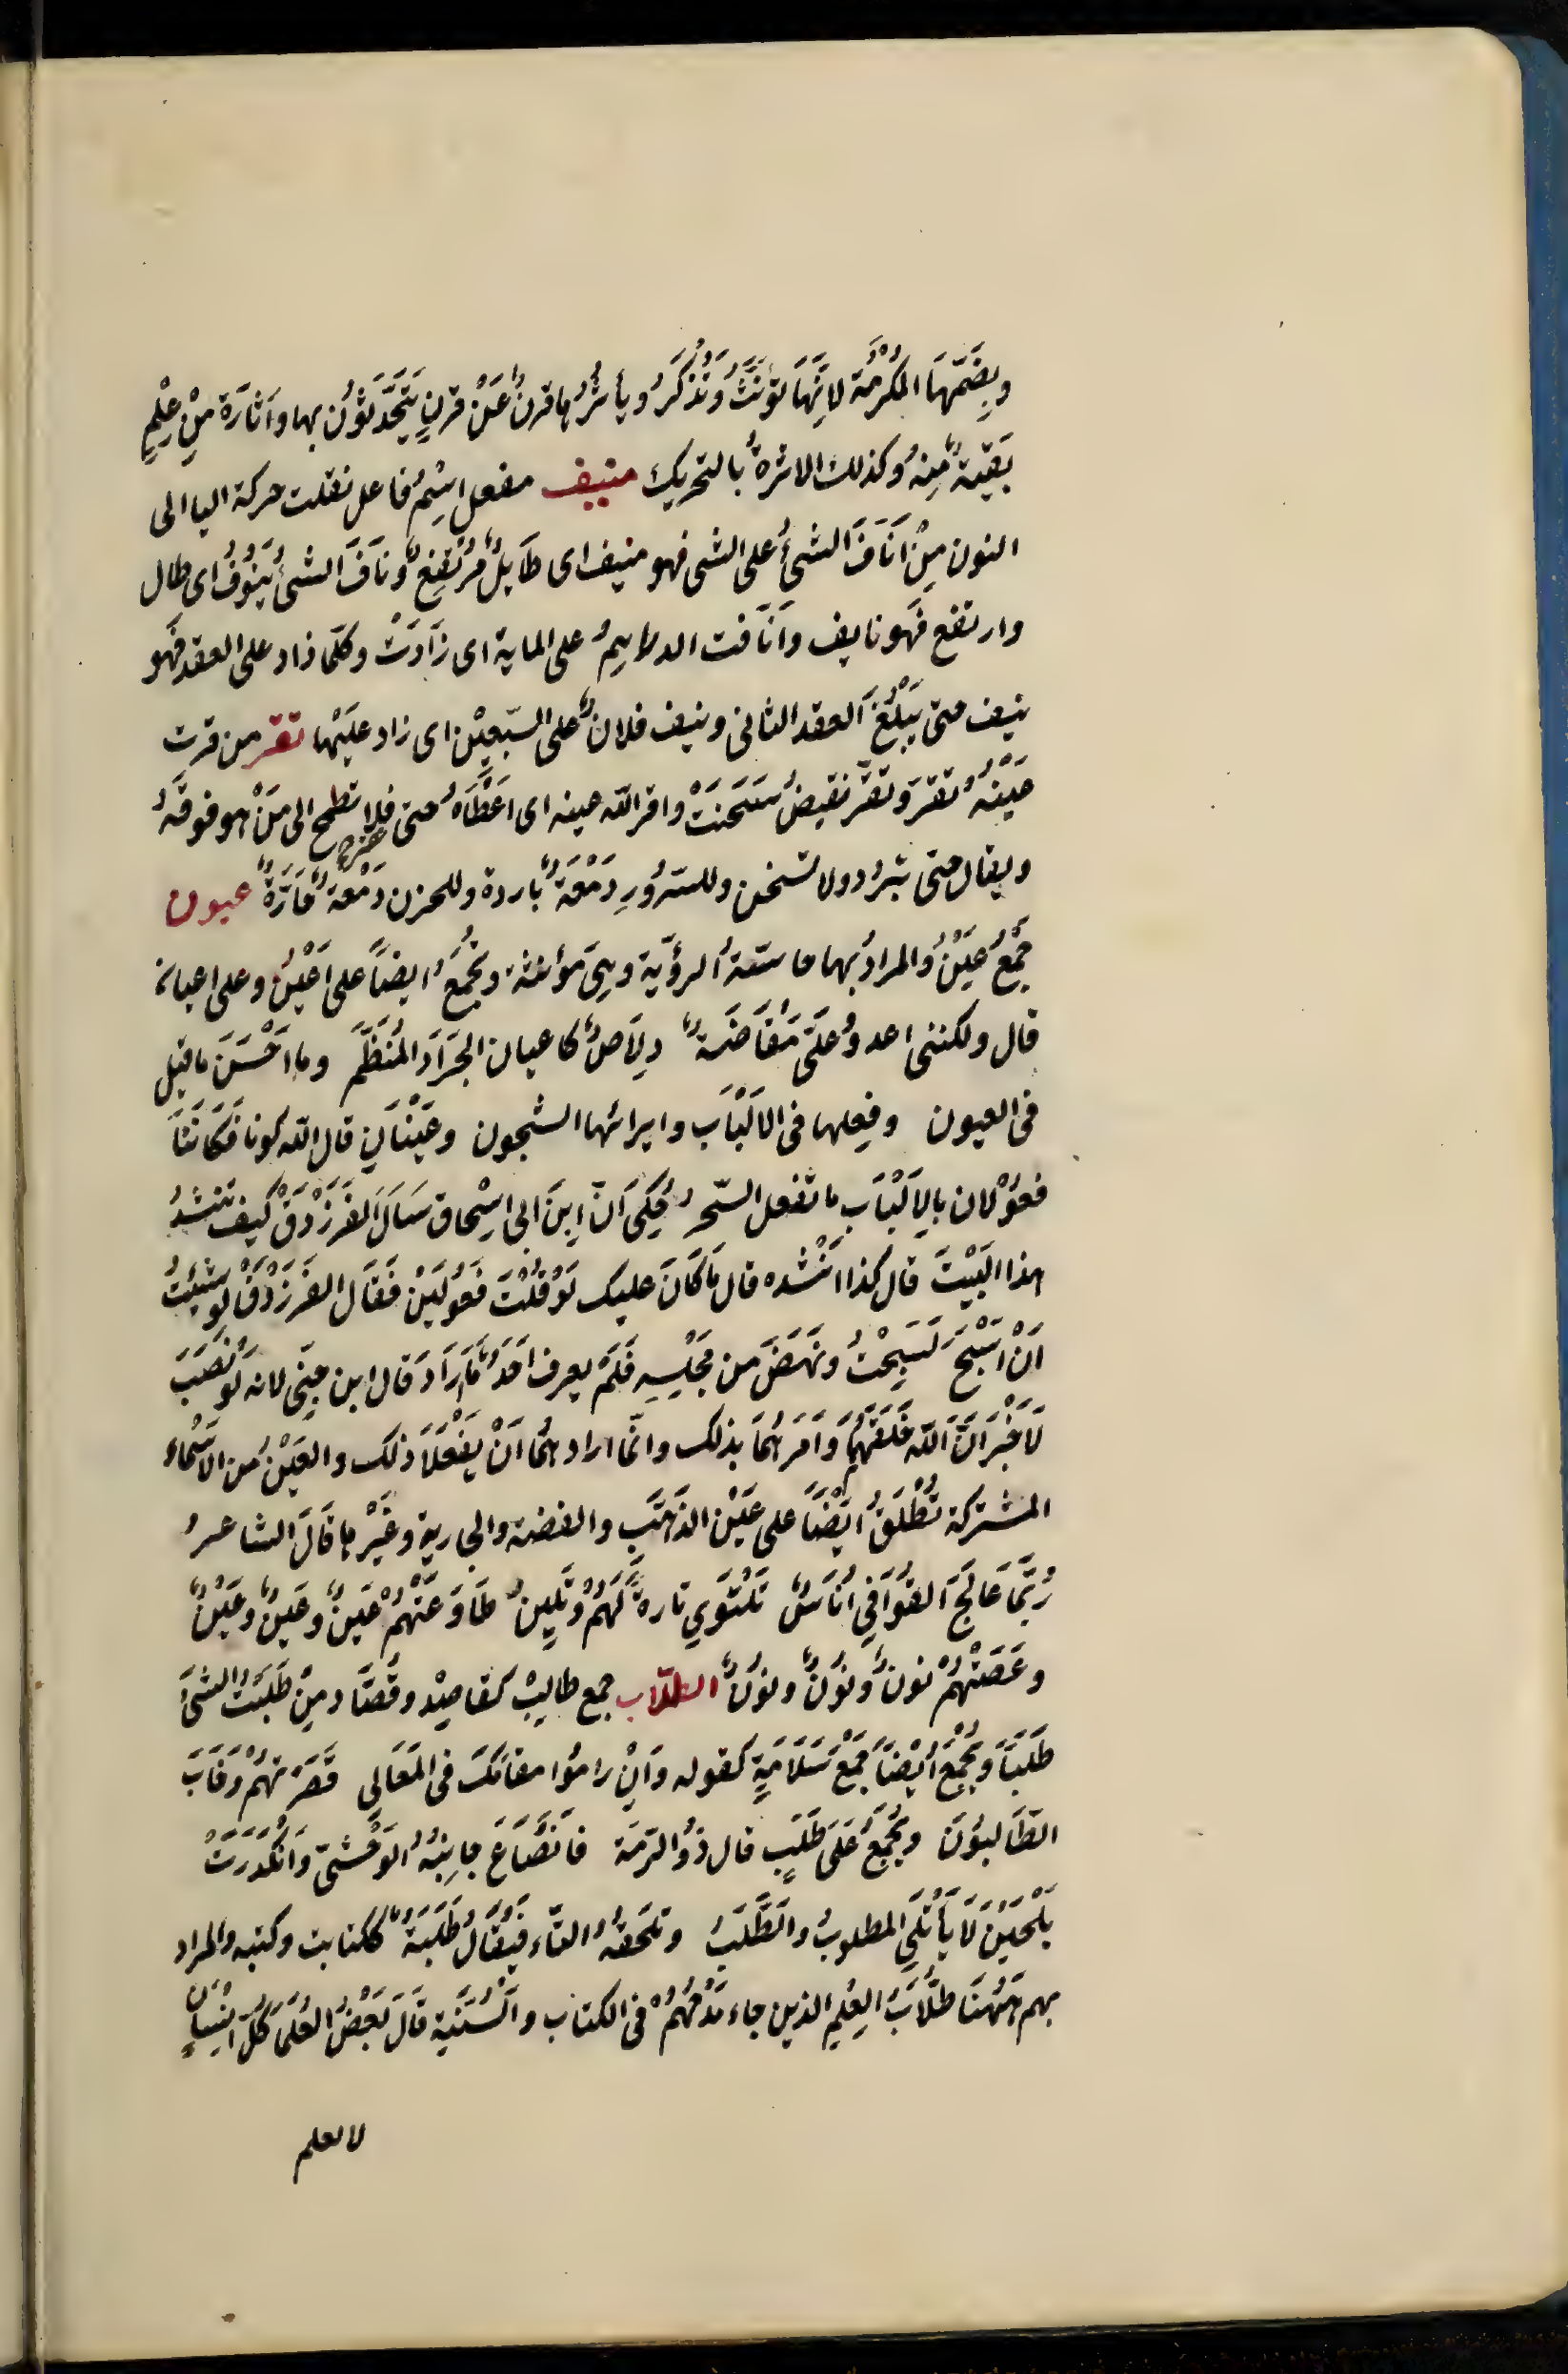 وبِضَمِّهَا المَكْرُمَة لاَنَّهَا تؤنَّثُ وَتُذكَرُ ويأثُرُها قرنٌ عَنْ قرنٍ يَتَحَدَّثُونَ بها واَثارَة مِنْ عِلْمٍ
بَقيّةٌ مِنهُ وكذلك الاثرةُ بالتحريك منيف مفعل اسْمُ فاعل نقلت حركة اليا الى
النون مِنْ اَنَافَ الشيُ على الشى فهو منيف اى طَايلٌ مُرْتَفِعٌ ونَافَ الشىُ يَنوُفُ اى طال
وارتفع فَهو نايف وَانَافت الدراهِمُ على الماية اى زَادَتْ وكلّما زاد على العقد فَهو
نيف حتى يَبْلُغَ العقد الثانى ونيف فلانٌ على السّبعِيْن اى زاد عَلَيْها تقر من قرت
عَيْنُهُ تقرَ وتقرّ نقيضُ سَخَنَتْ واقر الله عينه اى اَعْطَاهُ حتى فلا تطمح الى مَنْ هو فوقَهُ
ويقال حتى تبرُد ولا تسخن وللسرُورِ دَمْعَةٌ باردة وللحزن دَمْعَةٌ حَارَّةٌ عيون
جَمْعُ عَيْنْ والمرادُ بها حاسّةُ الرؤيّة وهِىَ مؤنثة وتجْمَعُ ايضاً على اَعْيُن وعلى اعيان
قال ولكننى اعدوُ عَلَىّ مُفَاضَةٌ دِلَاصٌ كاعيان الجَرَادَ المُنَظَّمِ وما اَحْسَنَ ما قيل
فى العيون وفِعلها فى الاَلبَاب وايرائها الشجون وعَيْنَانِ قال الله كونا فكَانَتَا
فعوْلان بالاَلْبَابِ ما تفعل السّحرُ يُحكى اَنَّ ابنَ ابى اِسْحاق سَاَلَ الفَرَزْدَقَ كيف تنْشدُ
هذا البَيْتَ قال كذا انْشده قال مَا كَانَ عليك لَوْ قُلْتَ فعُولَيْن فَقَال الفَرَزْدَقْ لَو شِئْتُ
اَنْ اُسَبّحَ لَسَبّحْتُ ونَهَضَ من مَجْلِسِهِ فلَمْ يعرف اَحَدٌ مَا اَرَادَ قال ابن جِنّى لانه لَوْ نَصَبَ
لَاَخْبَرَ انَّ اَللّه خَلَقَهُمَا وَاَمَرَ هُمَا بذلك وانّما اراد هُمَا اَنْ يَفْعَلَا ذلك والعَيْنُ من الاَسْمَاء
المشتركة تُطْلَقُ ايْضَاً على عَيْن الذَهَب والفضة والجارية وغَيْرها قَالَ الشاعرُ
رُبَّمَا عَالَجَ القَوَافِي اُنَاسٌ تَلتَوِي تارةً لَهُمْ وَتَلِينُ طَاوَعَتْهُمْ عَينٌ وعَينٌ وعَيْنٌ
وعَصَتْهُمْ نونٌ ونُونٌ ونُونٌ الطلّاب جمع طالِبْ كقاصِدْ وقُصَّاد مِنْ طَلَبَتُ الشىَ
طَلَبَاً ويُجْمَعُ اَيْضَاً جَمْعَ سَلَامَةٍ كقوله وَاِنْ رامُوا مقامَكَ فى المَعَالى قَصَرْتهُمْ وخَابَ
الطَالبُونَ ويُجْمَعُ عَلى طَلَبٍ قال ذوُ الرّمَة فانْصَاعَ جانِبُهُ الوَحْشىّ وَانكَدَرَتْ
يَلْحَبْنَ لَا يَأتلَى المطلوبُ والطّلَبُ وتلحَقهُ التّاء فيُقَالُ طَلَبَةٌ ككتابت وكتبه والمراد
بهم هَهُنَا طُلَّابَ العِلمِ الذين جاء مَدْحُهُمْ فى الكتاب والسُّنَّة قَالَ بَعْضُ العُلَمَا كُلّ اِنسانٍ
لا يعلم